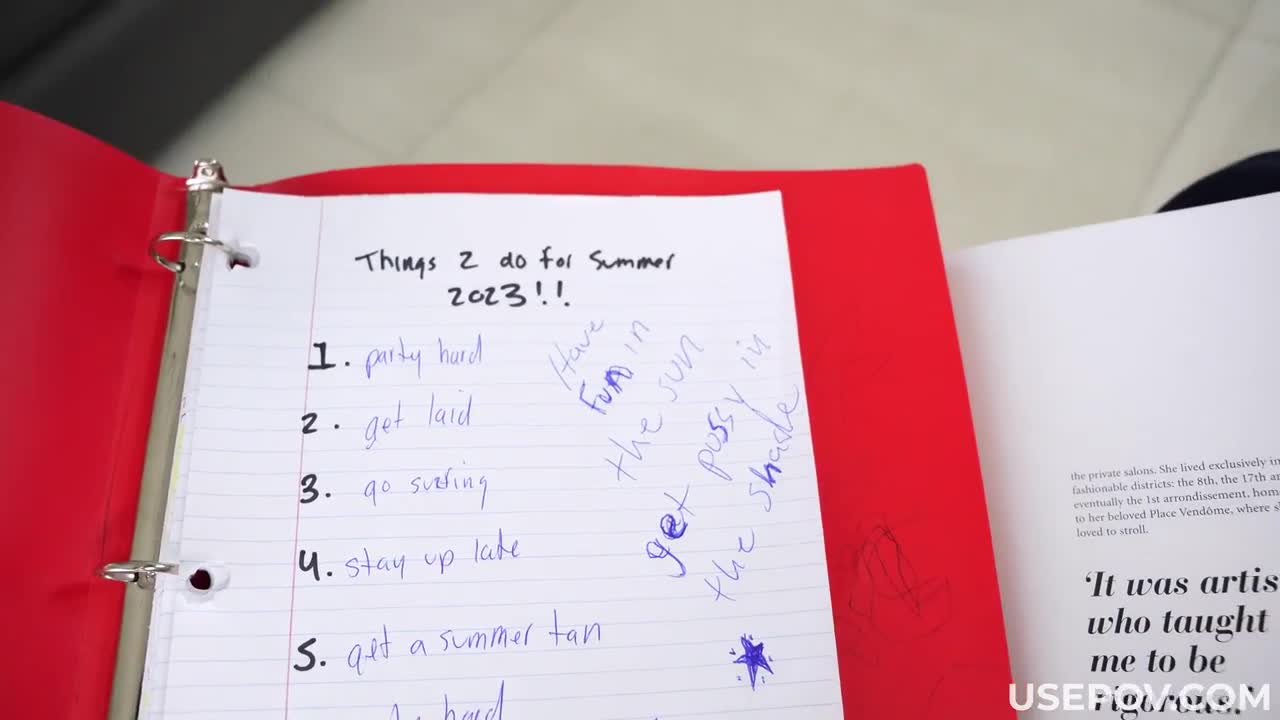 Things 2 do for Summer
2023!!
1. party hard
2. get laid
3. go surfing
4. stay up late
5. get a summer tan
hard
Have
Fun in
the sun
get pussy in
the shade
the private salons. She lived exclusively in
fashionable districts: the 8th, the 17th an
eventually the 1st arrondissement, hom
to her beloved Place Vendôme, where s
loved to stroll.
‘It was artis
who taught
me to be
rigorous.’
USEPOV.COM